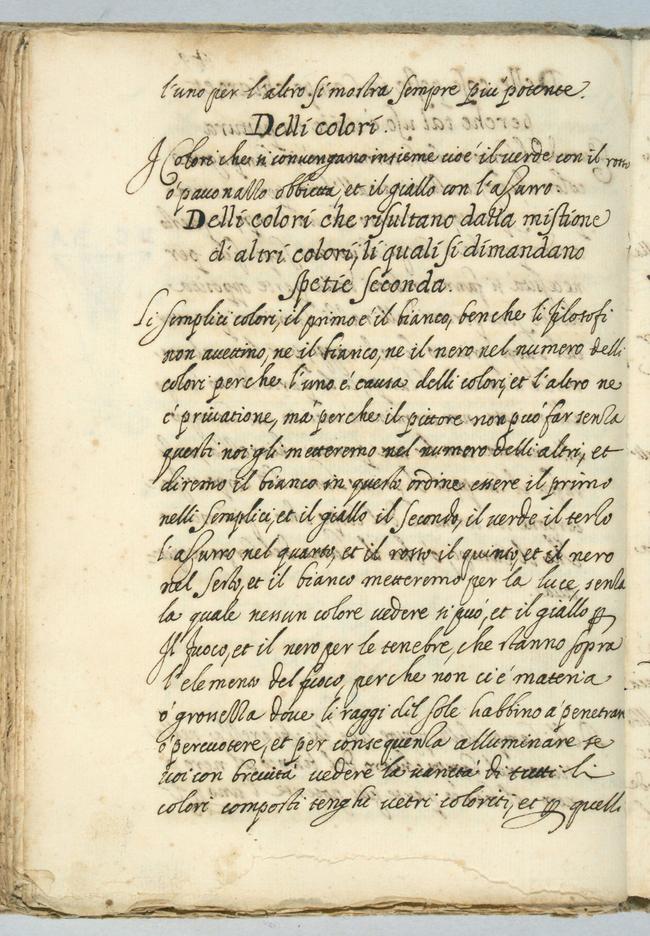 l'uno per l'altro si mostra sempre piu potente.
Delli colori
I Colori che si convengano insieme cioe' il verde con il rosso
o' pavonazzo obbietta, et il giallo con l'azurro.
Delli colori che risultano dalla mistione
d'altri colori, li quali si dimandano
spetie seconda.
Li semplici colori, il primo é il bianco, benche li filosofi
non avettino, ne il bianco, ne il nero nel numero delli
colori perche l'uno é causa delli colori, et l'altro ne
é privatione, ma' perche il pittore non può far senza
questi noi gli metteremo nel numero delli altri, et
diremo il bianco in questo ordine essere il primo
nelli semplici, et il giallo il secondo, il verde il terzo
l'azurro nel quarto, et il rosso il quinto, et il nero
nel sesto, et il bianco metteremo per la luce, senza
la quale nessun colore vedere si può, et il giallo
Il fuoco, et il nero per le tenebre, che stanno sopra
l'elemento del fuoco, perche non ci é materia
ó grossezza dove li raggi del sole habbino á penetrar
ó percuotere, et per consequenza alluminare se
voi con brevità vedere la varietà di tutti li
colori composti tenghi vetri coloriti, et quelli